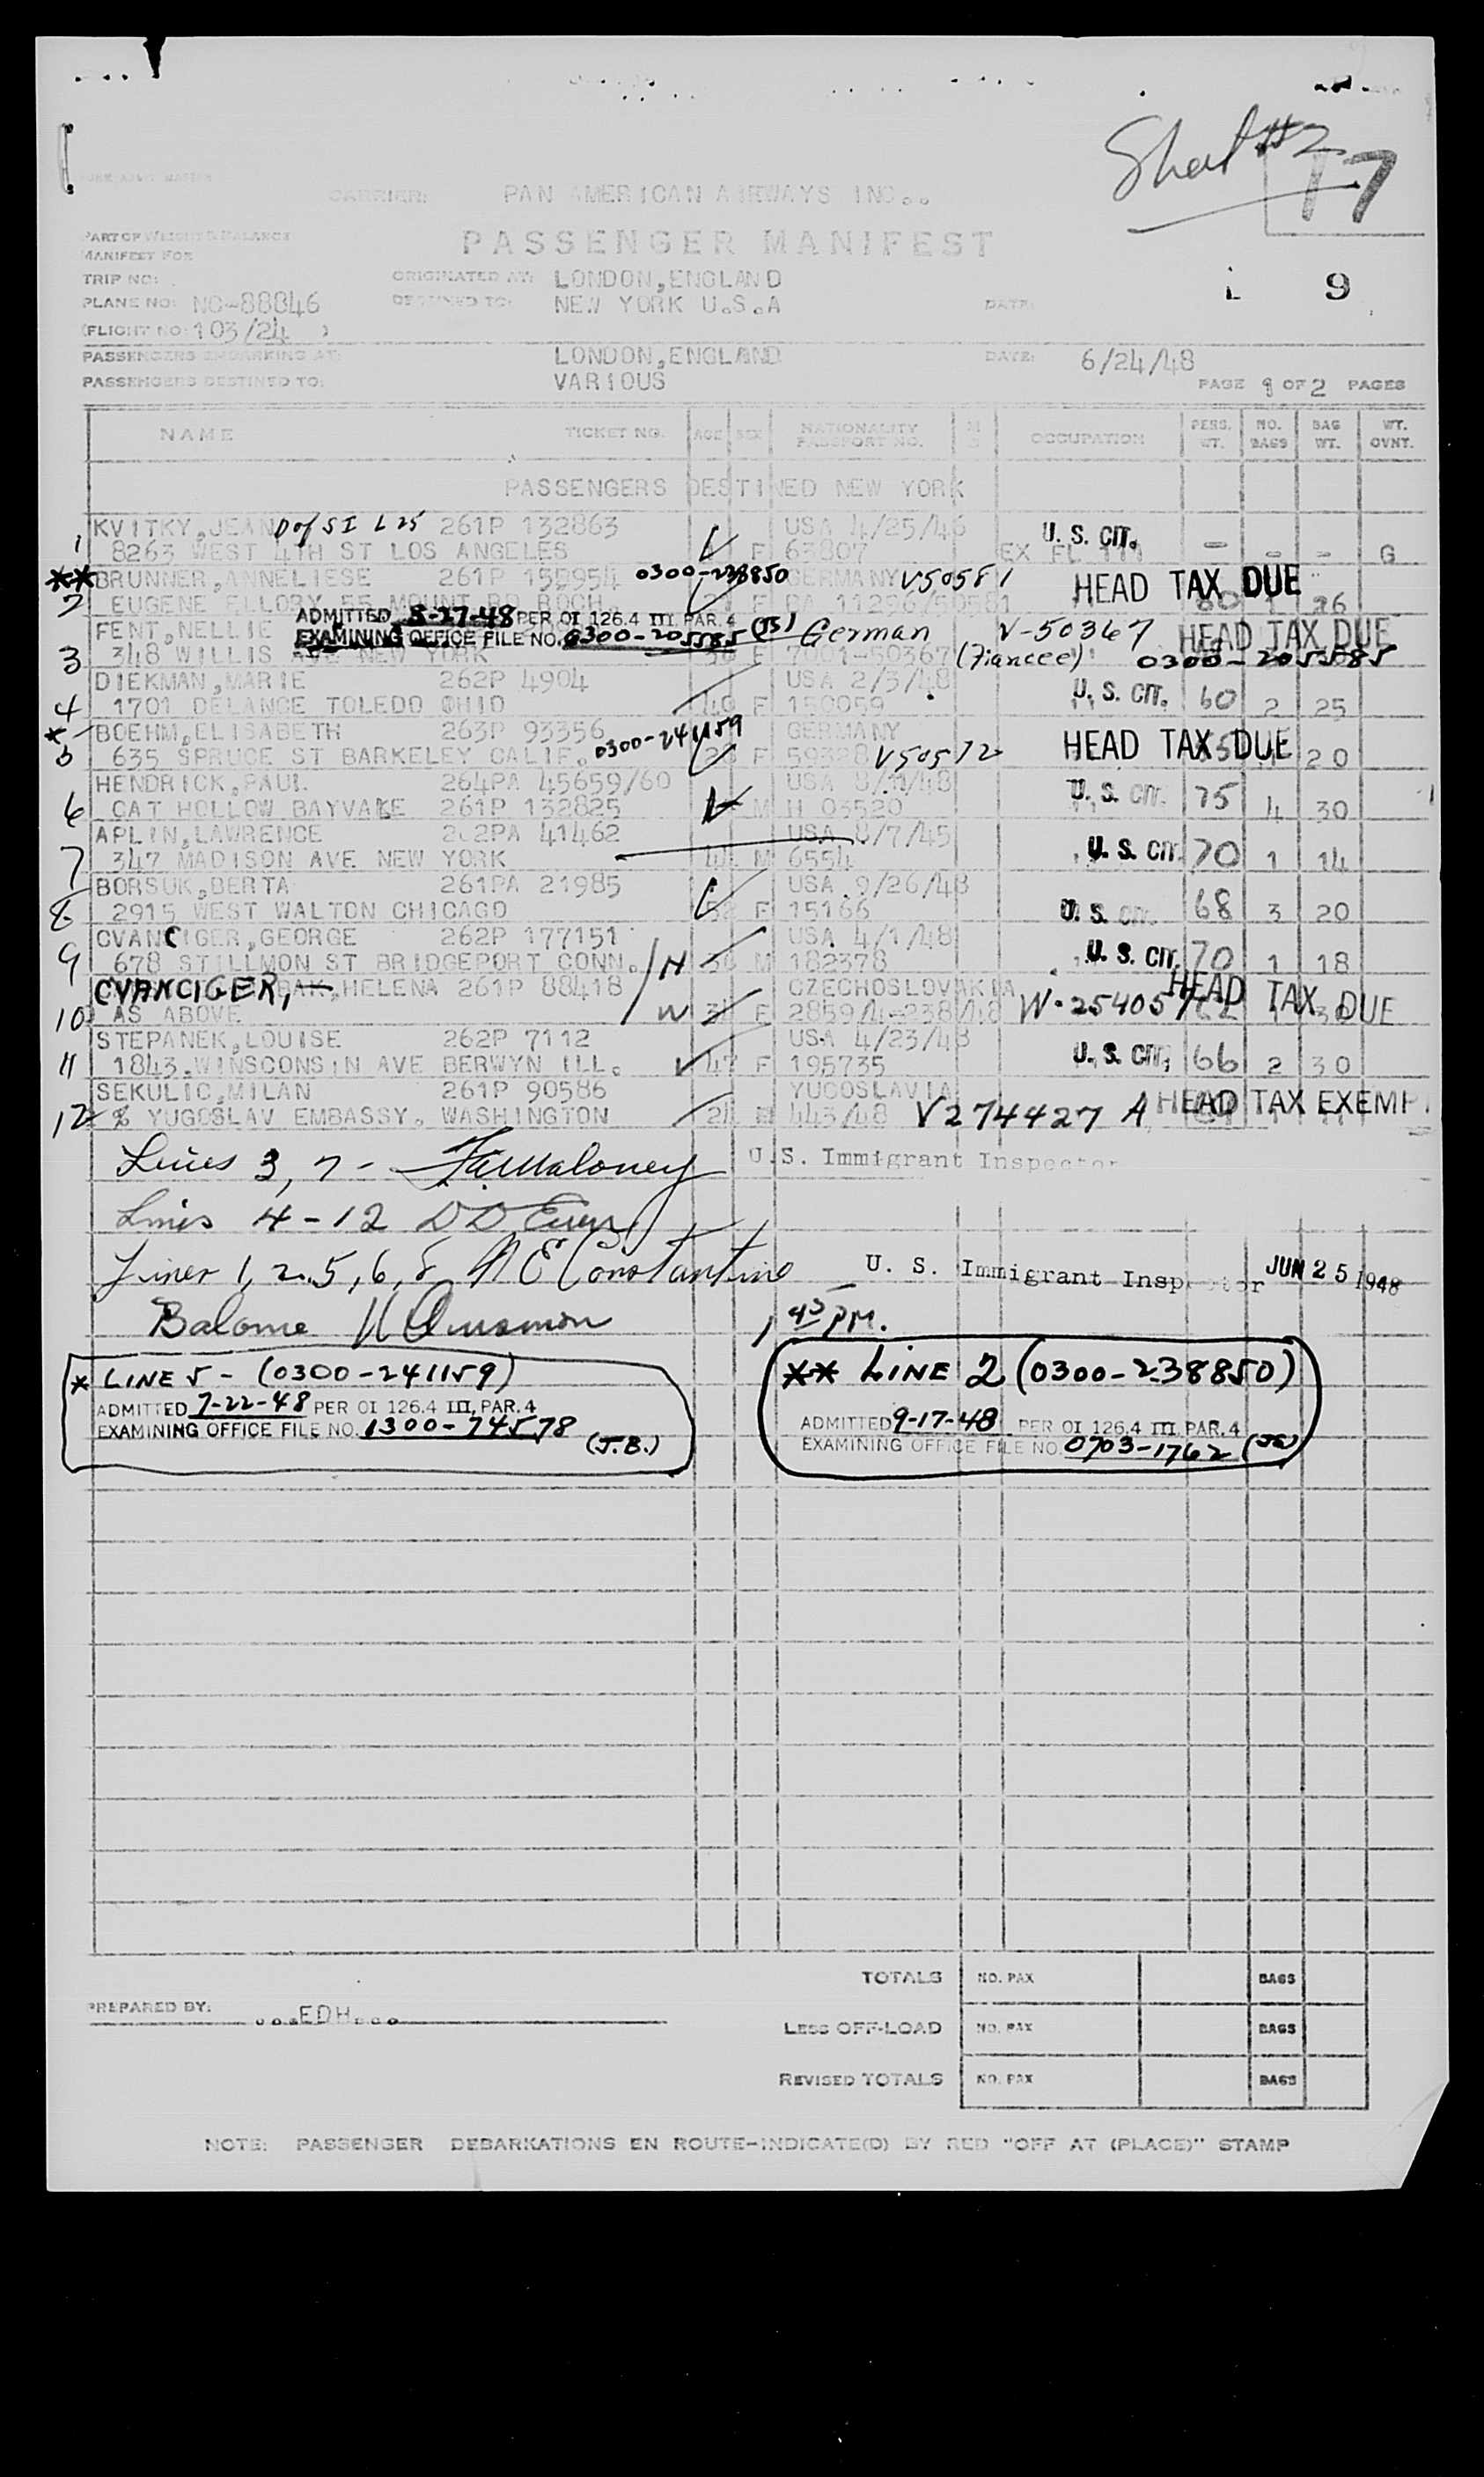 Sheet #2
17
CARRIER: PAN AMERICAN AIRWAYS INC..
PART OF WEIGHT & BALANCE
MANIFEST FOR
PASSENGER MANIFEST
TRIP NO: ORIGINATED AT: LONDON,ENGLAND
9
PLANE NO: NC-88846 DESTINED TO: NEW YORK U.S.A DATE:
(FLIGHT NO: 103/24 )
PASSENGERS EMBARKING AT: LONDON,ENGLAND DATE: 6/24/48
PASSENGERS DESTINED TO: VARIOUS PAGE 1 OF 2 PAGES
NAME TICKET NO. AGE SEX NATIONALITY PASSPORT NO. OCCUPATION PERS. WT. NO. BAGS BAG WT. WT. OVNT.
PASSENGERS DESTINED NEW YORK
KVITKY,JEAN D of SI L 25 261P 132863 USA 4/25/46 U. S. CIT.
1 8263 WEST 4TH ST LOS ANGELES F 63807 - - - G
** BRUNNER,ANNELIESE 261P 155954 0300-238850 GERMANY V50581 HEAD TAX DUE
2 EUGENE ELLORY 55 MOUNT RD ROCH F PA 11296/50581 60 1 26
ADMITTED 8-27-48 PER OI 126.4 III. PAR. 4
FENT,NELLIE EXAMINING OFFICE FILE NO. 0300-205585 (JS) German V-50367 HEAD TAX DUE
3 348 WILLIS AVE NEW YORK F 7001-50367 (Fiancee) 0300-205585
DIEKMAN,MARIE 262P 4904 USA 2/3/48
4 1701 DELANCE TOLEDO OHIO 49 F 150059 U. S. CIT. 60 2 25
* BOEHM,ELISABETH 263P 93356 0300-241159 GERMANY
5 635 SPRUCE ST BARKELEY CALIF. F 59328 V50572 HEAD TAX DUE 20
HENDRICK,PAUL 264PA 45659/60 USA 8/11/48
6 CAT HOLLOW BAYVAKE 261P 132825 M H 03520 U. S. CIT. 75 4 30
APLIN,LAWRENCE 262PA 41462 USA 8/7/45
7 347 MADISON AVE NEW YORK 41 M 6554 U. S. CIT. 70 1 14
BORSUK,BERTA 261PA 21985 USA 9/26/48
8 2915 WEST WALTON CHICAGO 52 F 15166 U. S. CIT. 68 3 20
CVANCIGER,GEORGE 262P 177151 USA 4/1/48
9 678 STILLMON ST BRIDGEPORT CONN. H M 182378 U. S. CIT. 70 1 18
CVANCIGER, HELENA 261P 88418 CZECHOSLOVAKIA HEAD TAX DUE
10 AS ABOVE W F 2859/4-238/48 W-254057
STEPANEK,LOUISE 262P 7112 USA 4/23/48
11 1843.WINSCONSIN AVE BERWYN ILL. 47 F 195735 U. S. CIT. 66 2 30
SEKULIC,MILAN 261P 90586 YUGOSLAVIA
12 % YUGOSLAV EMBASSY. WASHINGTON 24 443/48 V274427 A HEAD TAX EXEMP
Lines 3, 7 - U.S. Immigrant Inspector
Lines 4-12
Lines 1, 2, 5, 6, 8 N E Constantino U. S. Immigrant Inspector JUN 25 1948
Balance 1 45 PM.
* LINE 5 - (0300-241159)
ADMITTED 7-22-48 PER OI 126.4 III, PAR. 4
EXAMINING OFFICE FILE NO. 1300-74578 (J.B.)
** LINE 2 (0300-238850)
ADMITTED 9-17-48 PER OI 126.4 III PAR. 4
EXAMINING OFFICE FILE NO. 0703-1762
TOTALS NO. PAX BAGS
PREPARED BY: ...EDH...
LESS OFF-LOAD NO. PAX BAGS
REVISED TOTALS NO. PAX BAGS
NOTE: PASSENGER DEBARKATIONS EN ROUTE-INDICATE(D) BY RED "OFF AT (PLACE)" STAMP